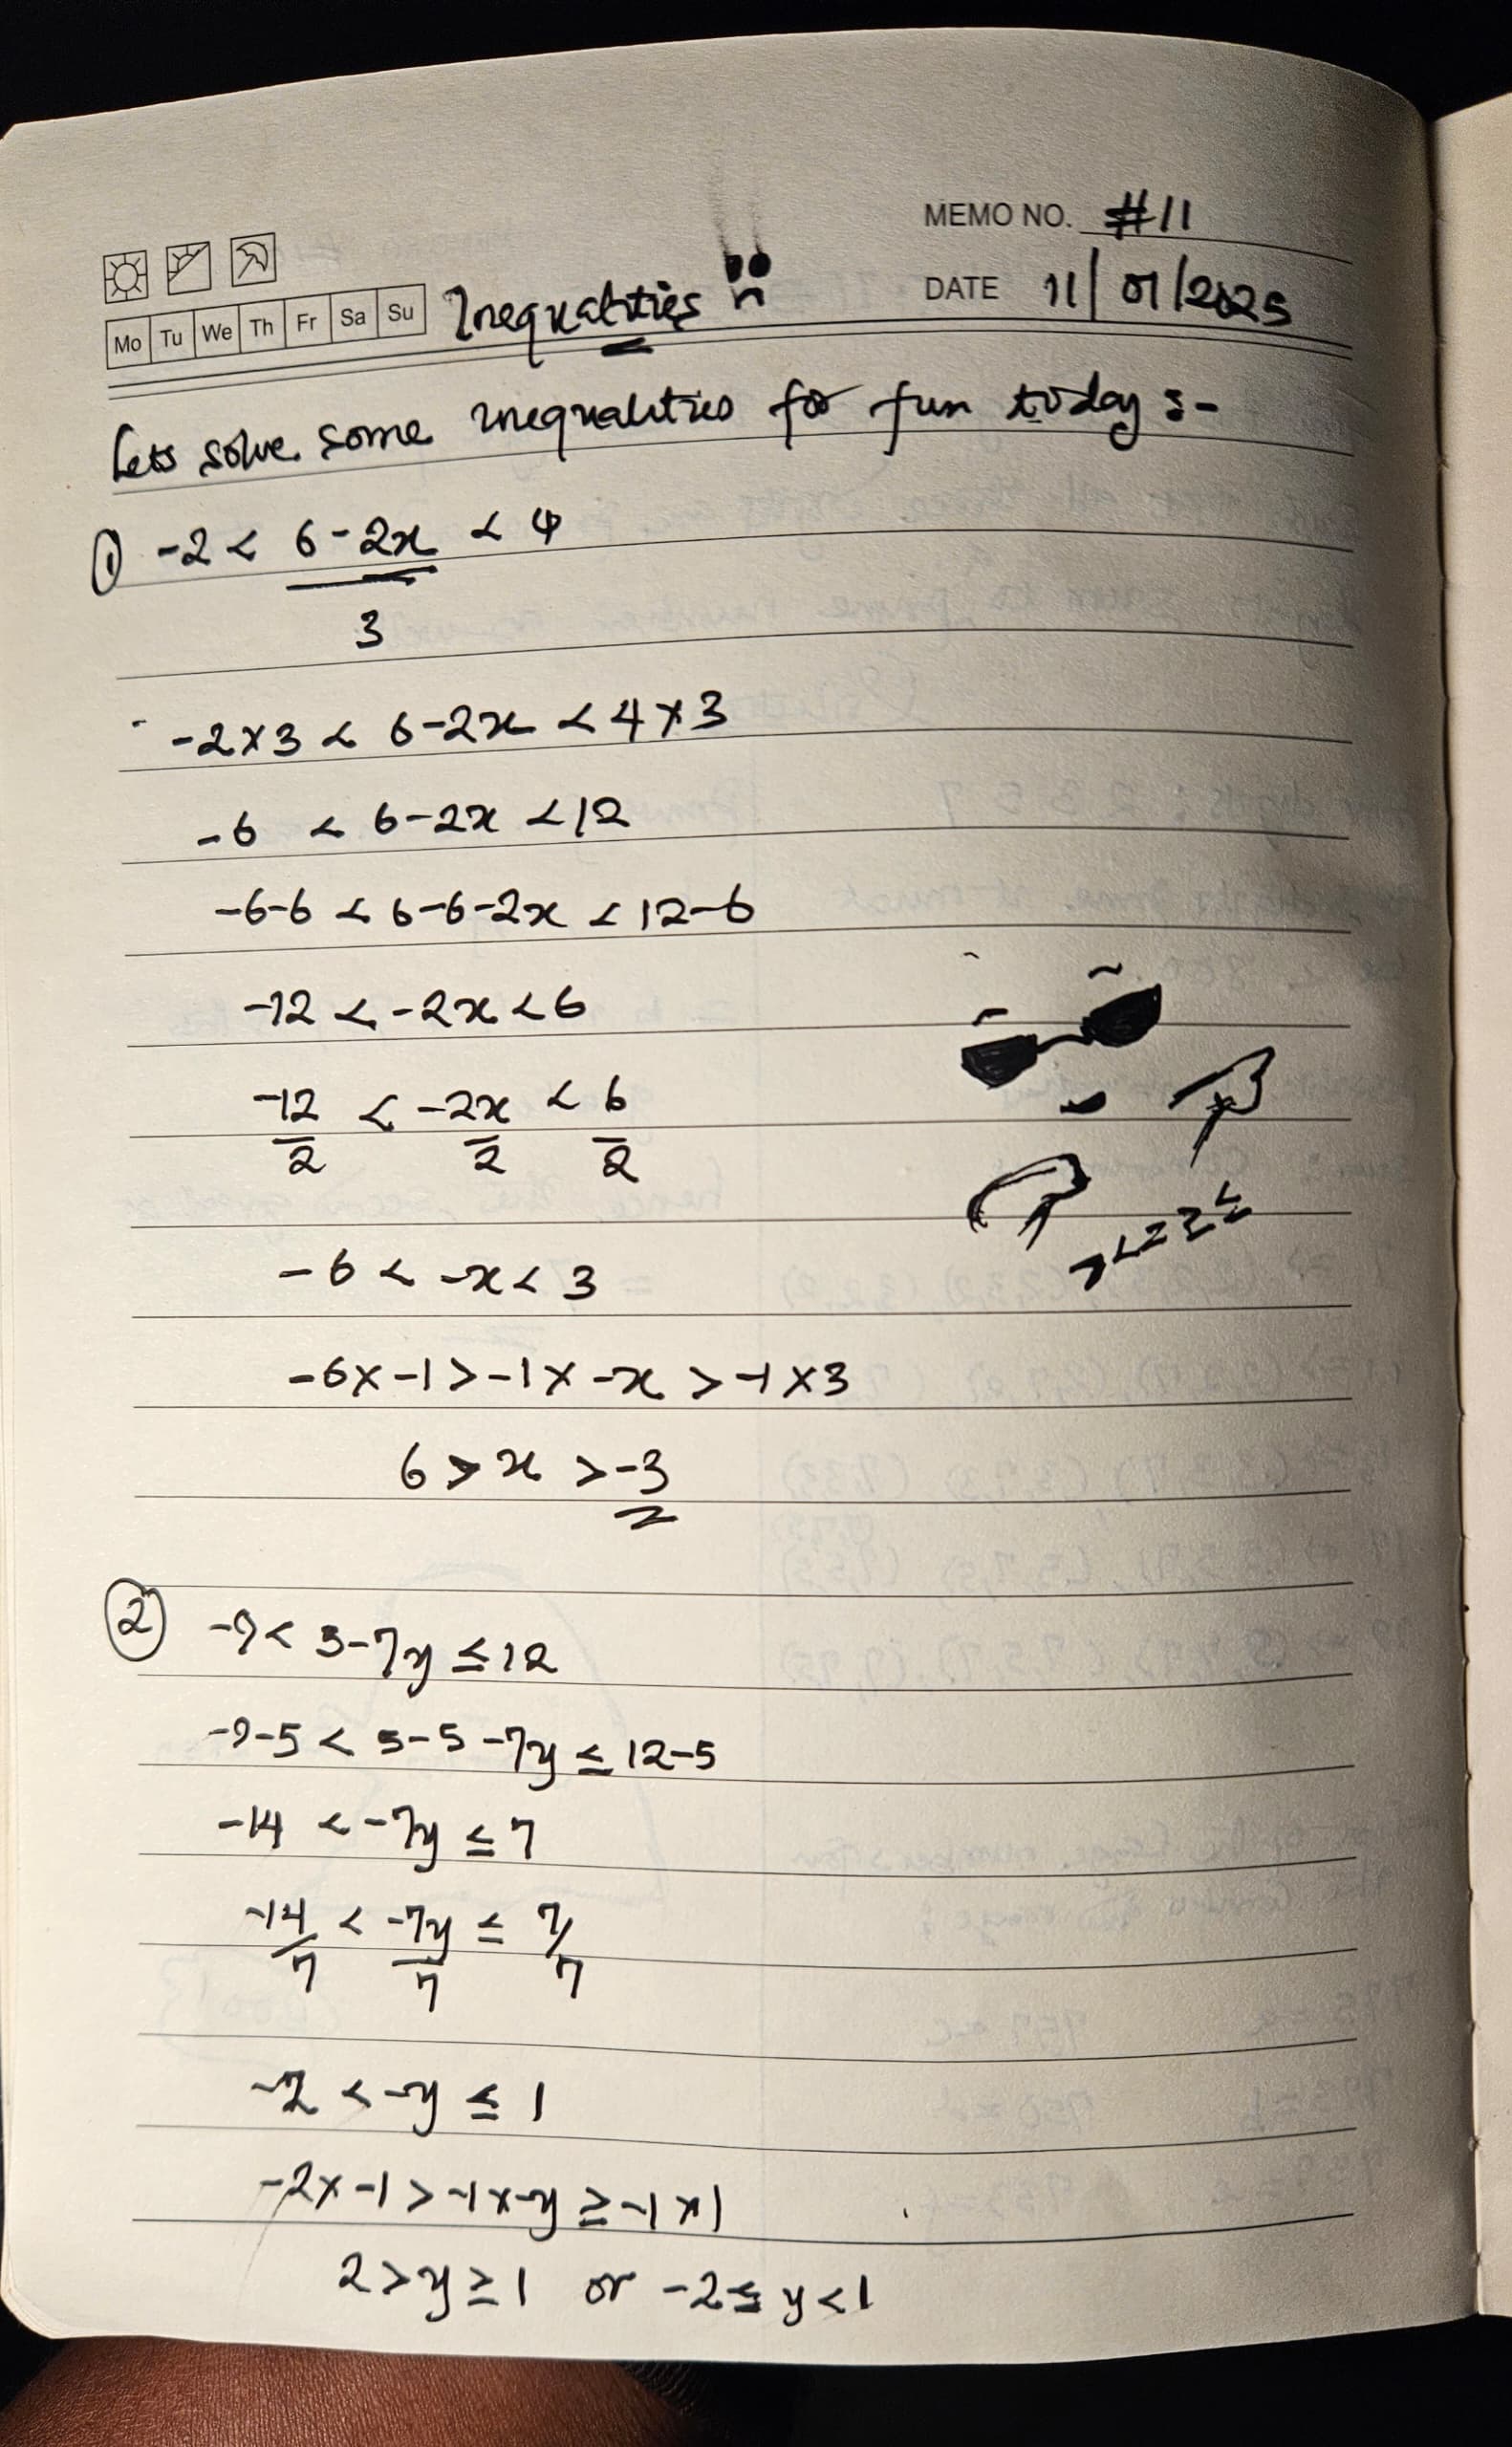 MEMO NO. #11
DATE 11/01/2025
Mo Tu We Th Fr Sa Su
Inequalities
Lets solve some inequalities for fun today :-
① -2 < 6-2x < 4
3
-2×3 < 6-2x < 4×3
-6 < 6-2x < 12
-6-6 < 6-6-2x < 12-6
-12 < -2x < 6
-12/2 < -2x/2 < 6/2
-6 < -x < 3
-6x-1 > -1x-x > -1x3
6 > x > -3
② -9 < 5-7y ≤ 12
-9-5 < 5-5-7y ≤ 12-5
-14 < -7y ≤ 7
-14/7 < -7y/7 ≤ 7/7
-2 < -y ≤ 1
-2x-1 > -1x-y ≥ -1x1
2 > y ≥ 1 or -2 ≤ y < 1